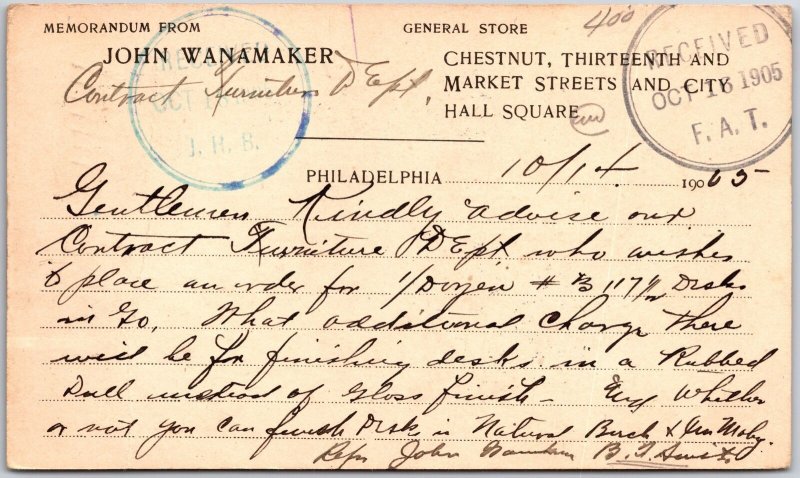 MEMORANDUM FROM
JOHN WANAMAKER
Contract Furniture DEpt,
GENERAL STORE
CHESTNUT, THIRTEENTH AND
MARKET STREETS AND CITY
HALL SQUARE
400
RECEIVED
OCT
J. R. B.
RECEIVED
OCT 16 1905
F. A. T.
PHILADELPHIA 10/14 190 05
Gentlemen Kindly advise our
Contract Furniture DEpt who wishes
to place an order for 1/Dozen # Desks
in Go, What additional charge there
will be for finishing desks in a Rubbed
Dull instead of Gloss finish - Whether
or not you can finish Desk in Natural Birch &
John Wanamaker